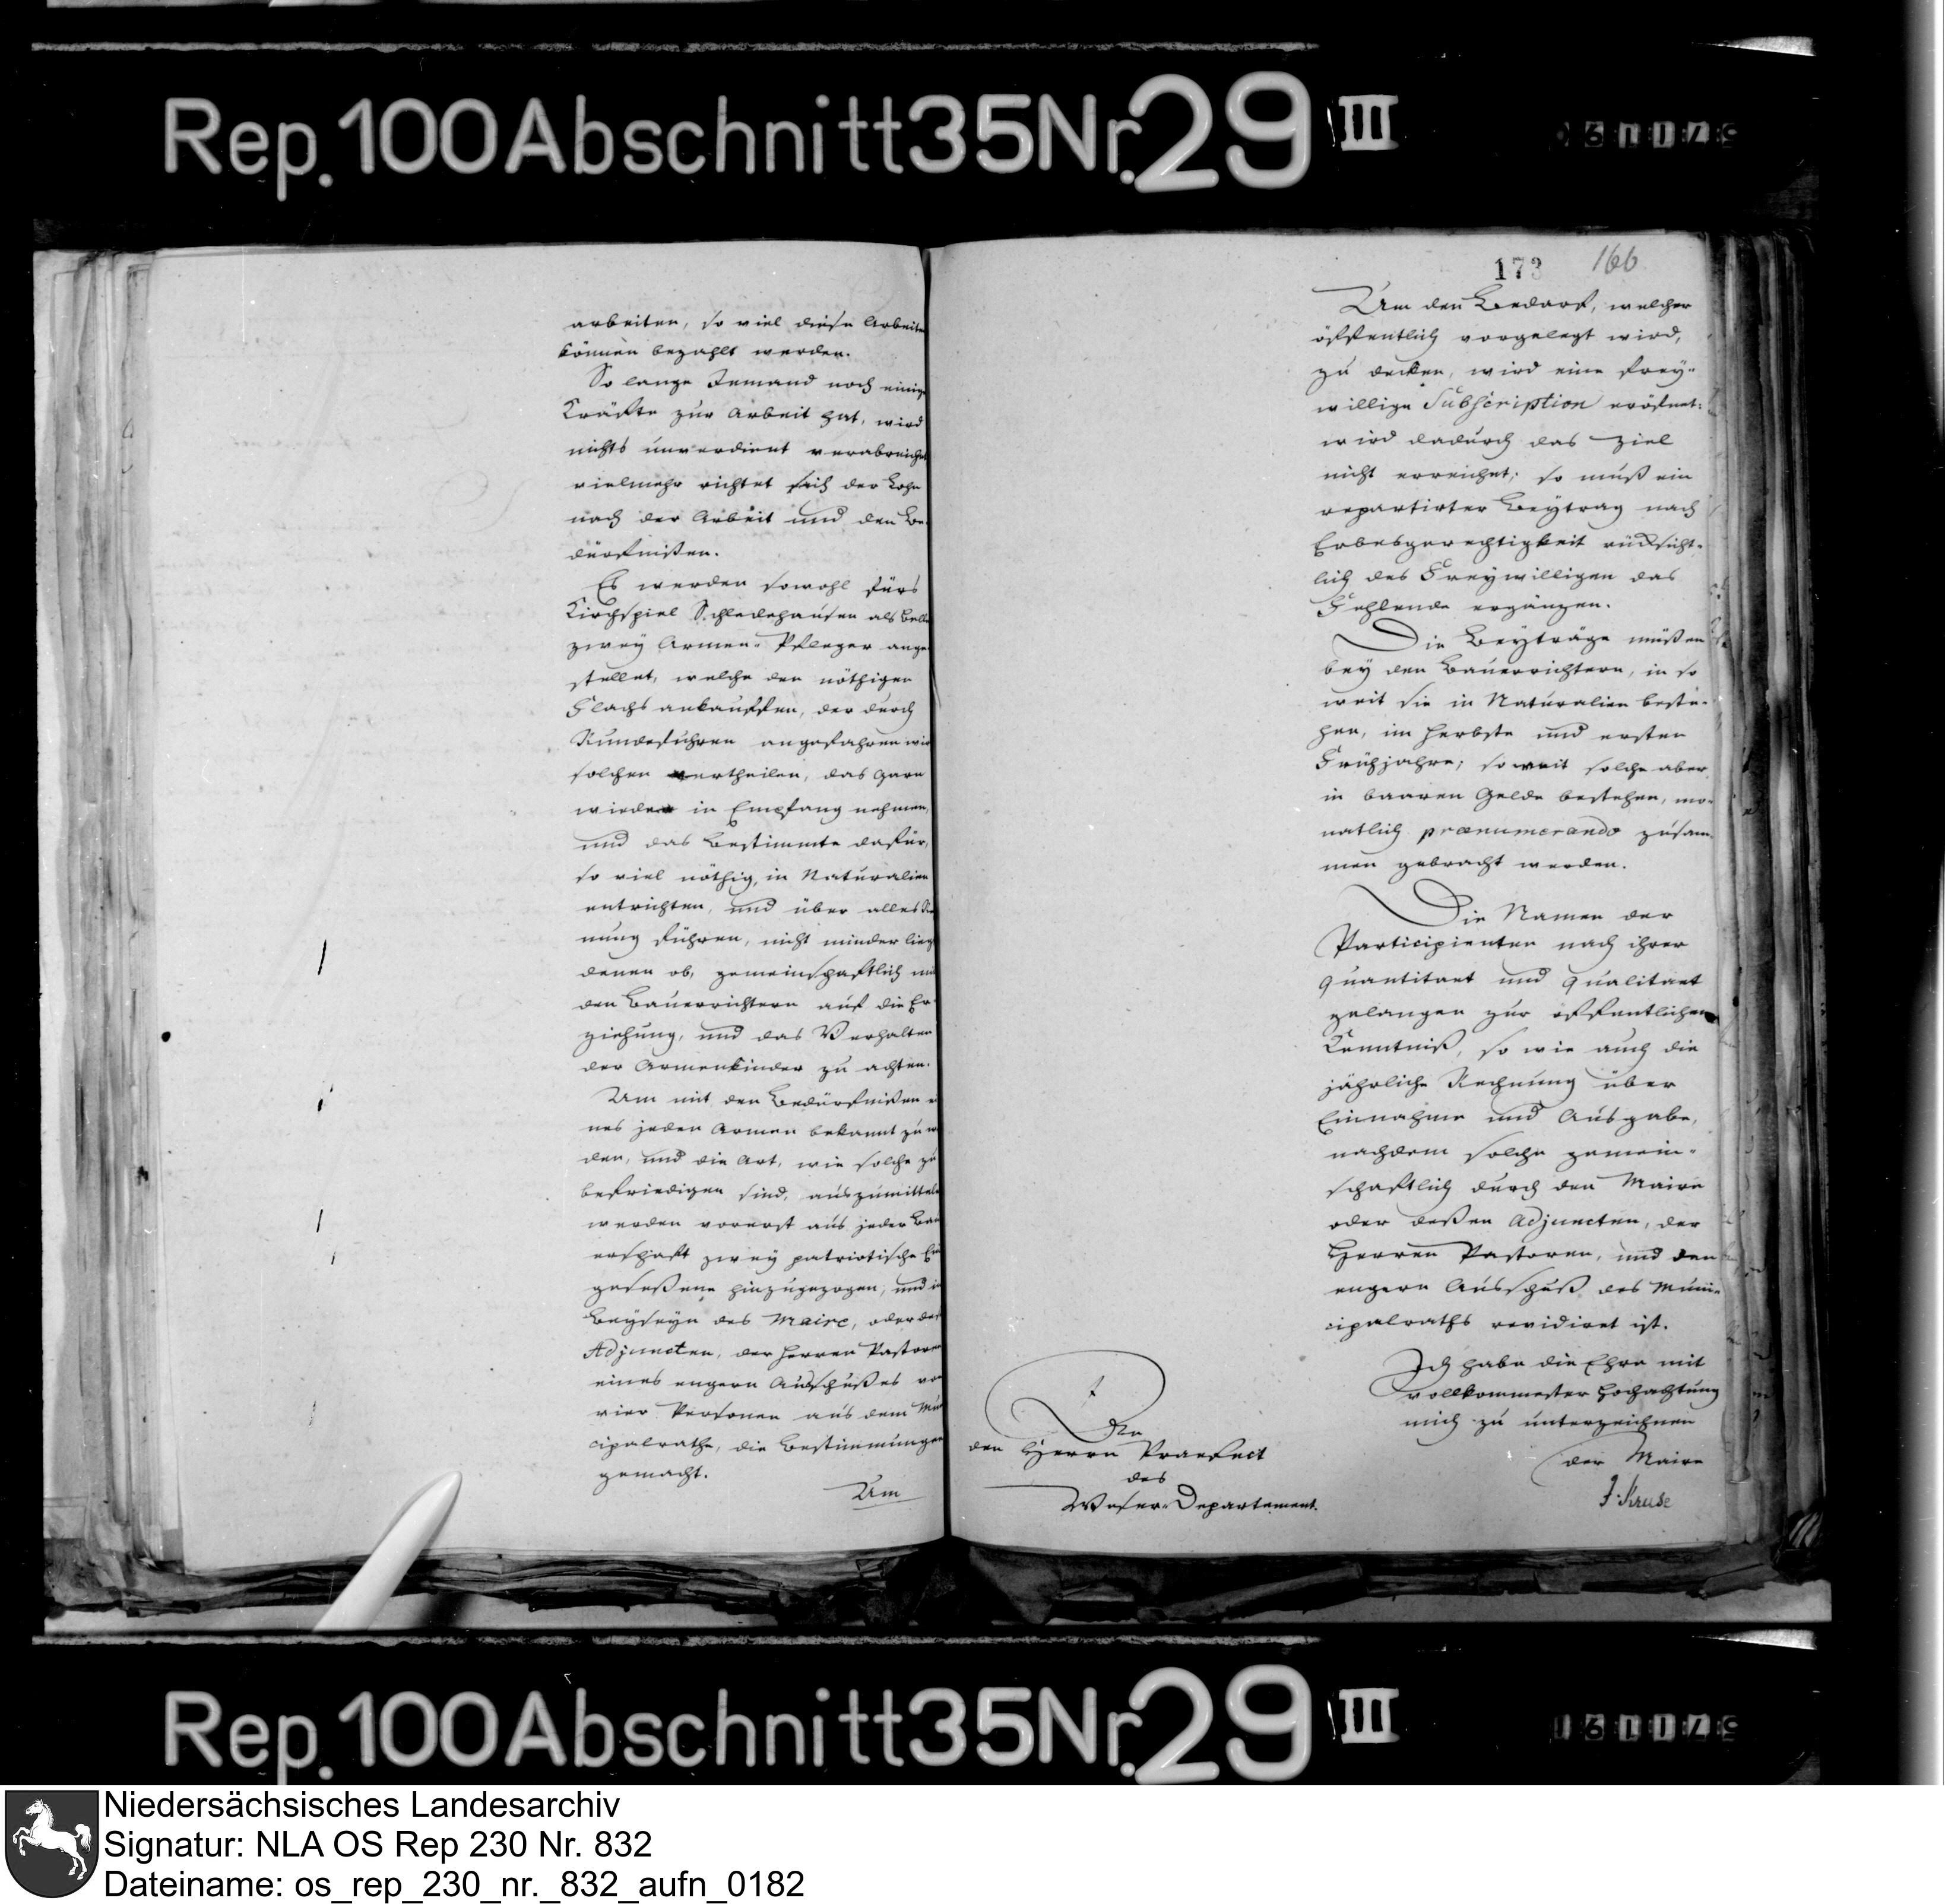 Rep. 100 Abschnitt 35 Nr. 29 III
arbeiten, so viel diese Arbeiten
können bezahlt werden.
So lange Jemand noch einige
Kräfte zur Arbeit hat, wird
nichts unverdient verabreicht
vielmehr richtet sich der Lohn
nach der Arbeit und den Be-
dürfnißen.
Es werden sowohl fürs
Kirchspiel Schledehausen als Belm
zwey Armen-Pfleger ange-
stellet, welche den nöthigen
Flachs ankauffen, der durch
Rundefuhren angefahren wird
solchen vertheilen, das Garn
wieder in Empfang nehmen,
und das Bestimmte dafür,
so viel nöthig, in Naturalien
entrichten, und über alles
nung führen, nicht minder liegt
denen ob, gemeinschaftlich mit
den Bauerrichtern auf die Er-
ziehung, und das Verhalten
der Armenkinder zu achten.
Um mit den Bedürfnißen ei
nes jeden Armen bekannt zu wer
den, und die Art, wie solche zu
befriedigen sind, auszumitteln
werden vorerst aus jeder Bau
erschaft zwey patriotische Ein
geseßene hinzugezogen, und in
Beyseyn des Maire, oder des
Adjuncten, der Herren Pastoren
eines engern Ausschußes von
vier Personen aus dem Muni
cipalrathe, die Bestimmungen
gemacht.
Um
173 166
Um den Bedarf, welcher
öffentlich vorgelegt wird,
zu decken, wird eine frey-
willige Subscription eröfnet:
wird dadurch das Ziel
nicht erreichet; so muß ein
repartirter Beytrag nach
Erbesgerechtigkeit rücksicht-
lich des Freywilligen das
Fehlende ergänzen.
Die Beyträge müßen
bey den Bauerrichtern, in so
weit sie in Naturalien beste-
hen, im Herbste und ersten
Frühjahre; soweit solche aber
in baaren Gelde bestehen, mo-
natlich prænumerando zusam-
men gebracht werden.
Die Namen der
Participienten nach ihrer
Quantitaet und Qualitaet
gelangen zur öffentlichen
Kenntniß, so wie auch die
jährliche Rechnung über
Einnahme und Ausgabe,
nachdem solche gemein-
schaftlich durch den Maire
oder deßen Adjuncten, der
Herren Pastoren, und den
engern Ausschuß des Muni-
cipalraths revidiret ist.
Ich habe die Ehre mit
vollkommester Hochachtung
mich zu unterzeichnen
der Maire
J. Kruse
An
den Herrn Praefect
des
Weser-Departement.
Rep. 100 Abschnitt 35 Nr. 29 III
Niedersächsisches Landesarchiv
Signatur: NLA OS Rep 230 Nr. 832
Dateiname: os_rep_230_nr._832_aufn_0182